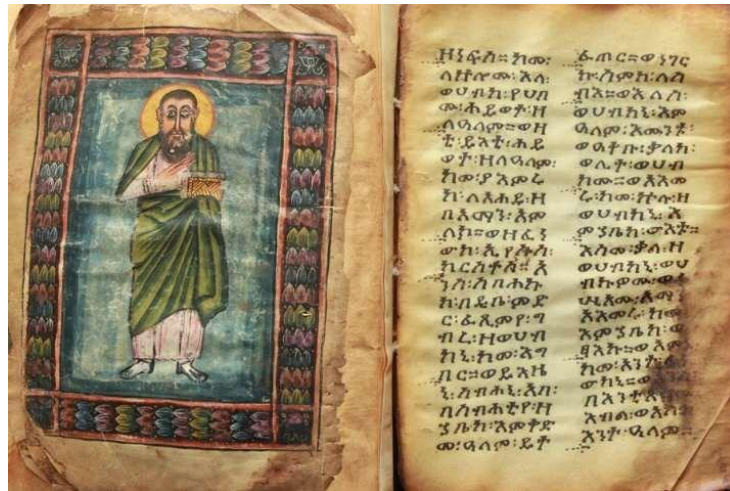 ዘነፍስ። ከመ፡
ለኵሉመ፡ እለ፡
ወሀብከ፡ የሀበ
ሙ፡ ሕይወተ፡ ዘ
ለዓለም። ወዛ
ቲ፡ ይእቲ፡ ሕይ
ወት፡ ዘለዓለም፡
ከመ፡ ያእምሩ
ከ፡ ለአሐዱ፡ ዘ
በአማን፡ አም
ላክ። ወዘፈነ
ውከ፡ ኢየሱስ፡
ክርስቶስ። አ
ንሰ፡ ሰባሕኩ
ከ፡ በዲበ፡ ምድ
ር፡ ፈጺምየ፡ ግ
ብረ፡ ዘወሀብ
ከኒ፡ ከመ፡ እግ
በር። ወይእዜ
ኒ፡ ሰብሐኒ፡ አበ፡
በስብሐቲየ፡ ዘ
ኀቤከ፡ እምቅድ
መ፡ ዓለም፡ ይት
ፈጠር። ወነገር
ኩ፡ ስምከ፡ ለሰ
ብእ። ወእለሰ፡
ወሀብከኒ፡ እም
ዓለም፡ እሙንቱ፡
ወዓቀቡ፡ ቃለከ፡
ወሊተ፡ ወሀብ
ከሙ። ወአእመ
ሩ፡ ከመ፡ ኵሉ፡ ዘ
ወሀብከኒ፡ እ
ምኀቤከ፡ ውእቱ።
እስመ፡ ቃለ፡ ዘ
ወሀብከኒ፡ ወሀ
ብክዎሙ፡
አማን
አእመሩ፡ ከመ
እምኀቤከ፡ ወ
ፃእኩ። ወአም
ከመ፡ አንተ፡ ፈ
ወከኒ። ወ
በእንቲአ
እብል፡ ወአኮ
እንተ፡ ዓለም።